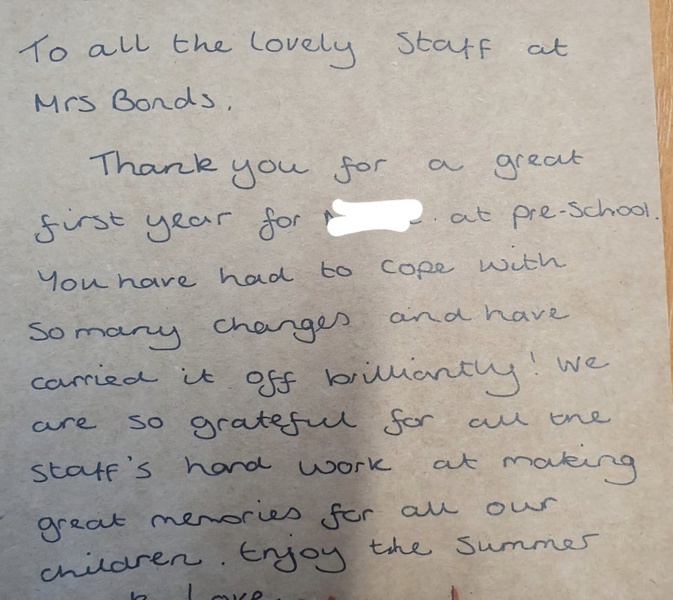 To all the lovely Staff at
Mrs Bonds.
Thank you for a great
first year for at pre-school.
You have had to cope with
so many changes and have
carried it off brilliantly! We
are so grateful for all the
staff's hard work at making
great memories for all our
children. Enjoy the Summer
Love